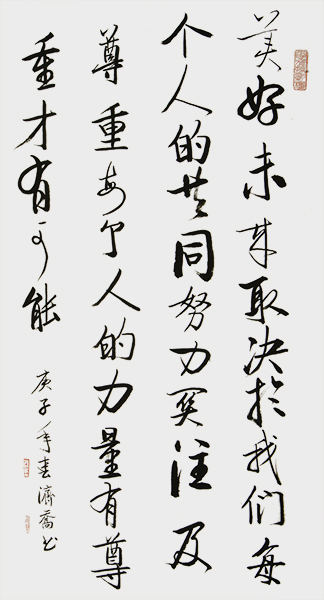 美好未来取决於我们每
个人的共同努力关注及
尊重每个人的力量有尊
重才有可能
庚子年春濟喬书